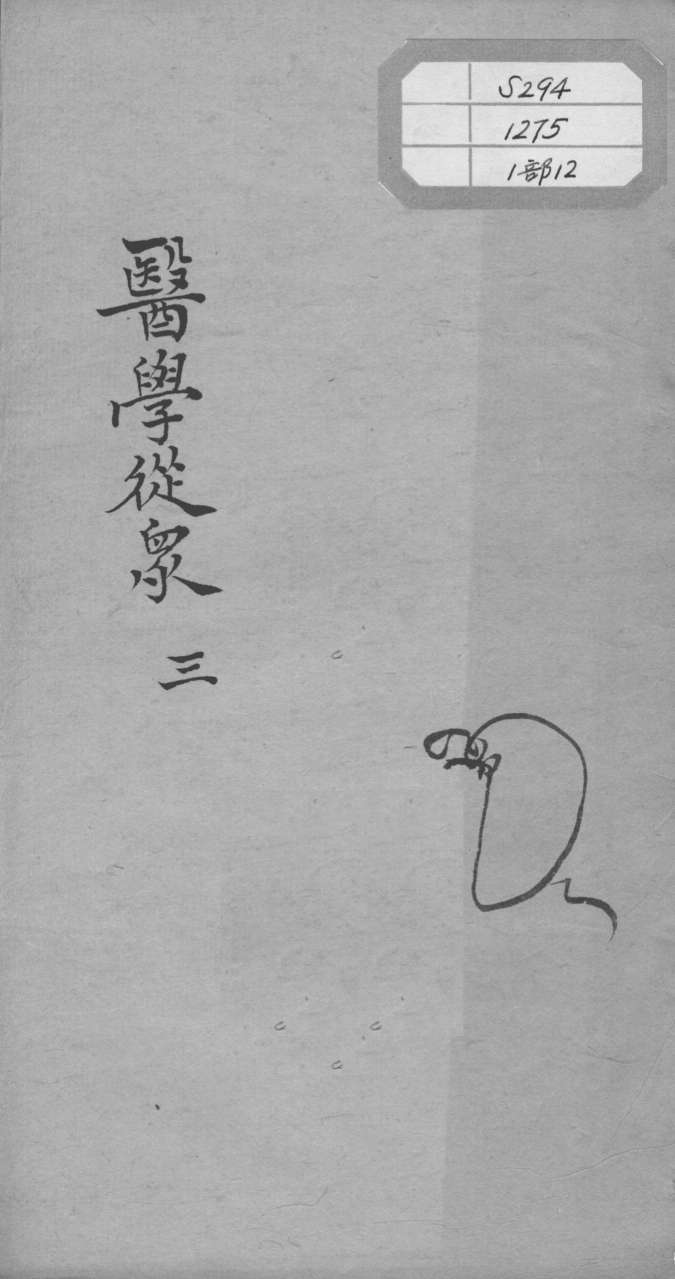 S294
1275
1部12
醫學從衆 三